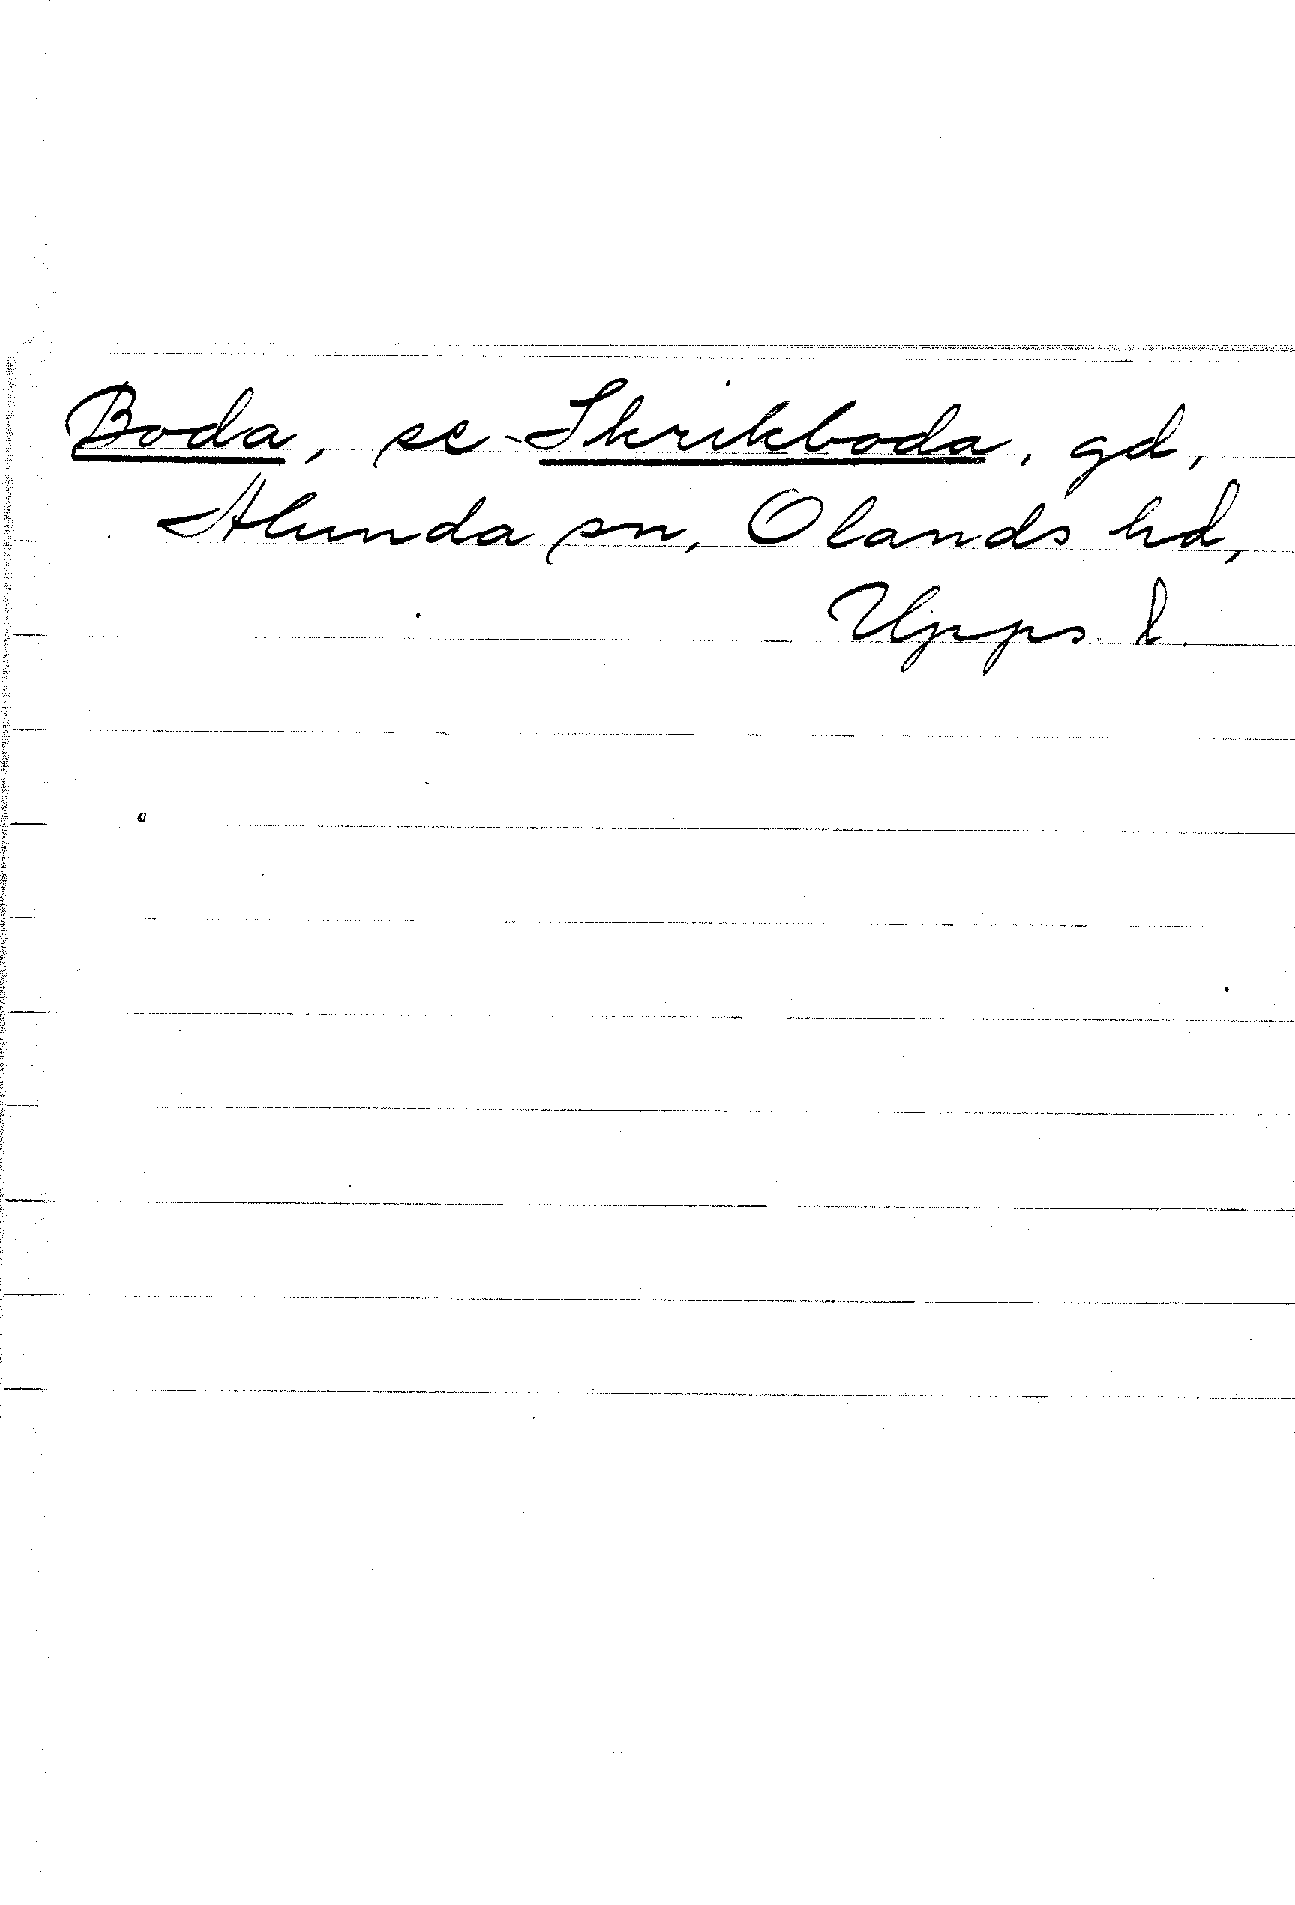 Boda, se Skrikboda, gd,
Alunda sn, Olands hd,
Upps. l.